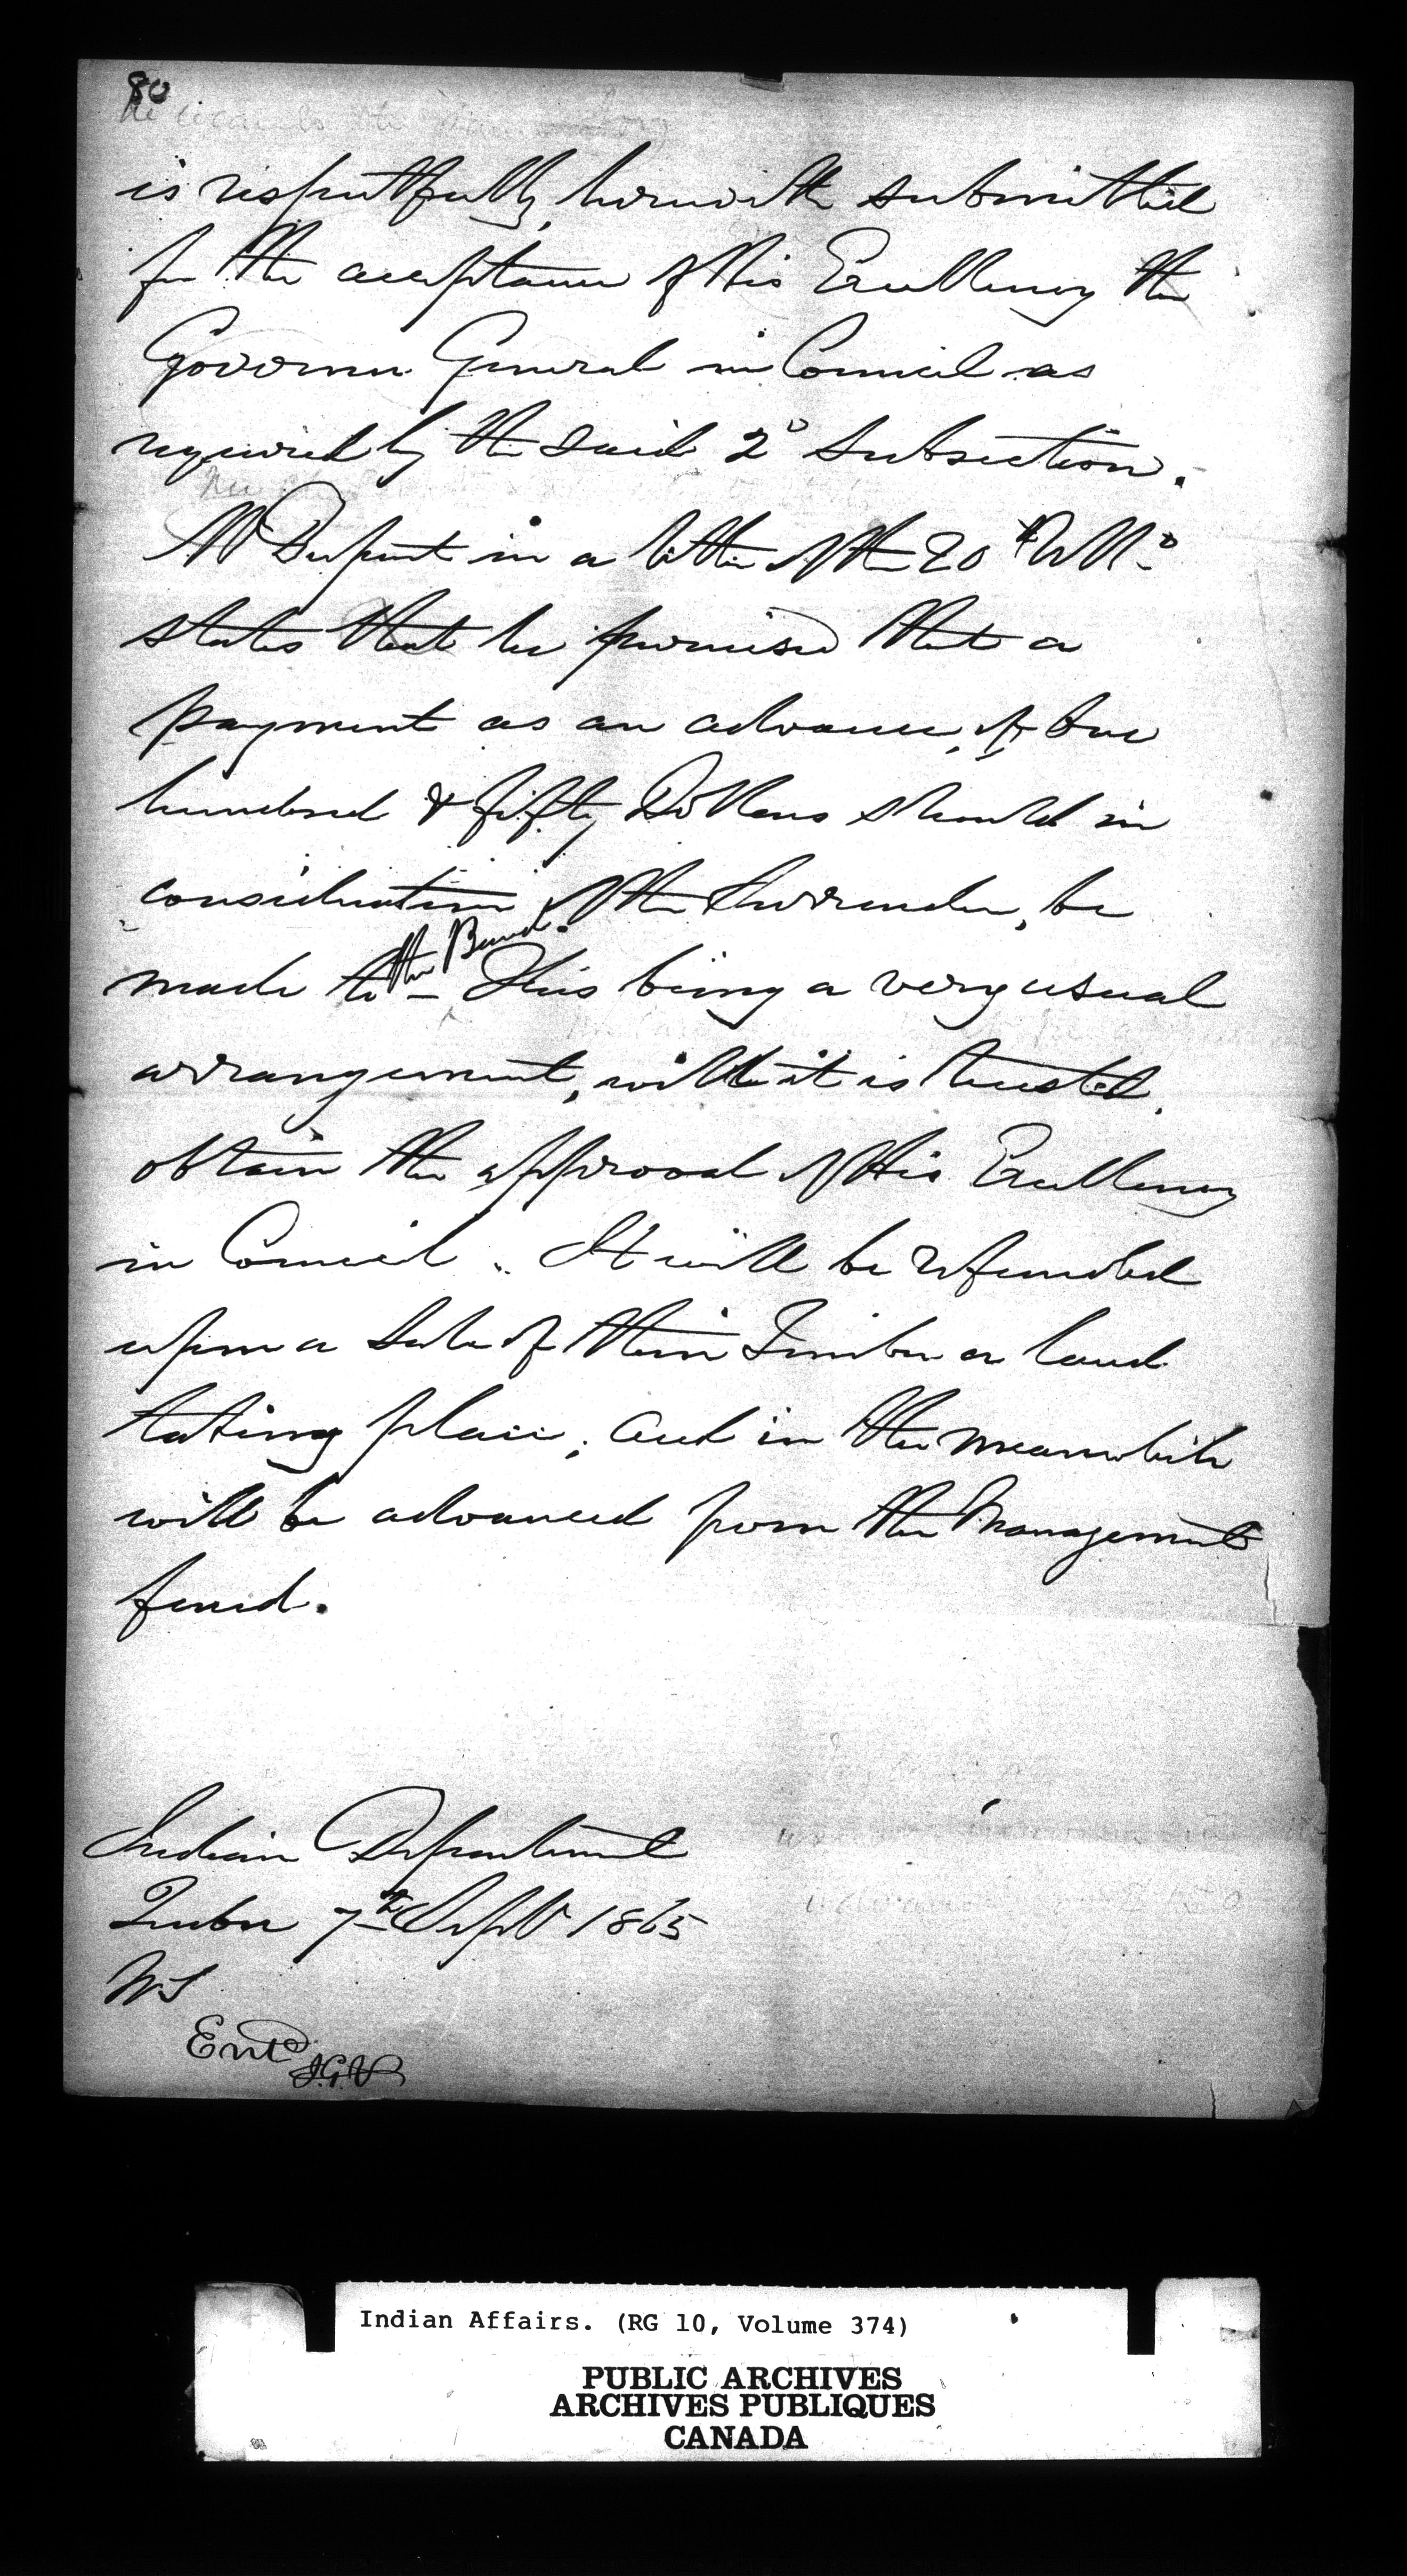 80
is respectfully, herewith submitted
for the acceptance of His Excellency the
Governor General in Council as
required by the said 2° Subsection.
Mr Dupont in a letter of the 20th Ulto
states that he promised that a
payment as an advance, of One
hundred & fifty Dollars should in
consideration of the Surrender, be
made to the Band. This being a very usual
arrangement, will it is trusted,
obtain the approval of His Excellency
in Council. It will be refunded
upon a Sale of their Timber or land
taking place; and in the meanwhile
will be advanced from the Management
fund.
Indian Department
Quebec 7th Sept 1865
WS
Entd
Indian Affairs. (RG 10, Volume 374)
PUBLIC ARCHIVES
ARCHIVES PUBLIQUES
CANADA